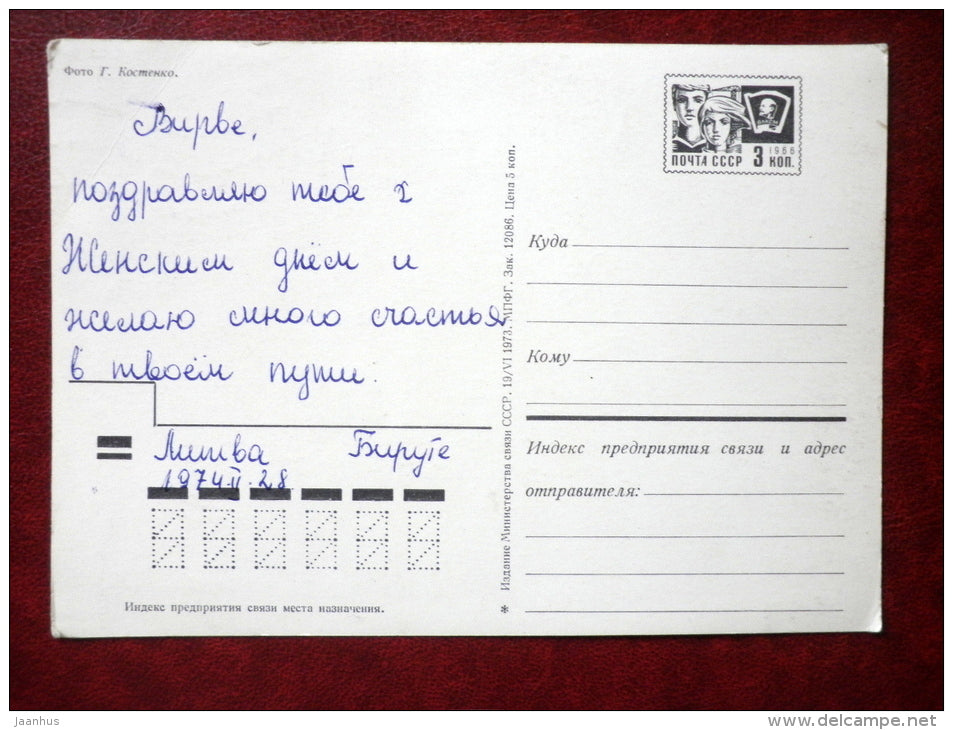 Фото Г. Костенко.
Вирве,
поздравляю тебе х
Женским днём и
желаю много счастья
в твоём пути.
Литва Бируте
1974 II 28
Индекс предприятия связи места назначения.
* Издание Министерства связи СССР. 19/VI 1973. МПФГ. Зак. 12086. Цена 5 коп.
ВЛКСМ
1966
ПОЧТА СССР 3 КОП.
Куда
Кому
Индекс предприятия связи и адрес
отправителя:
Jaanhus
delcampe.net